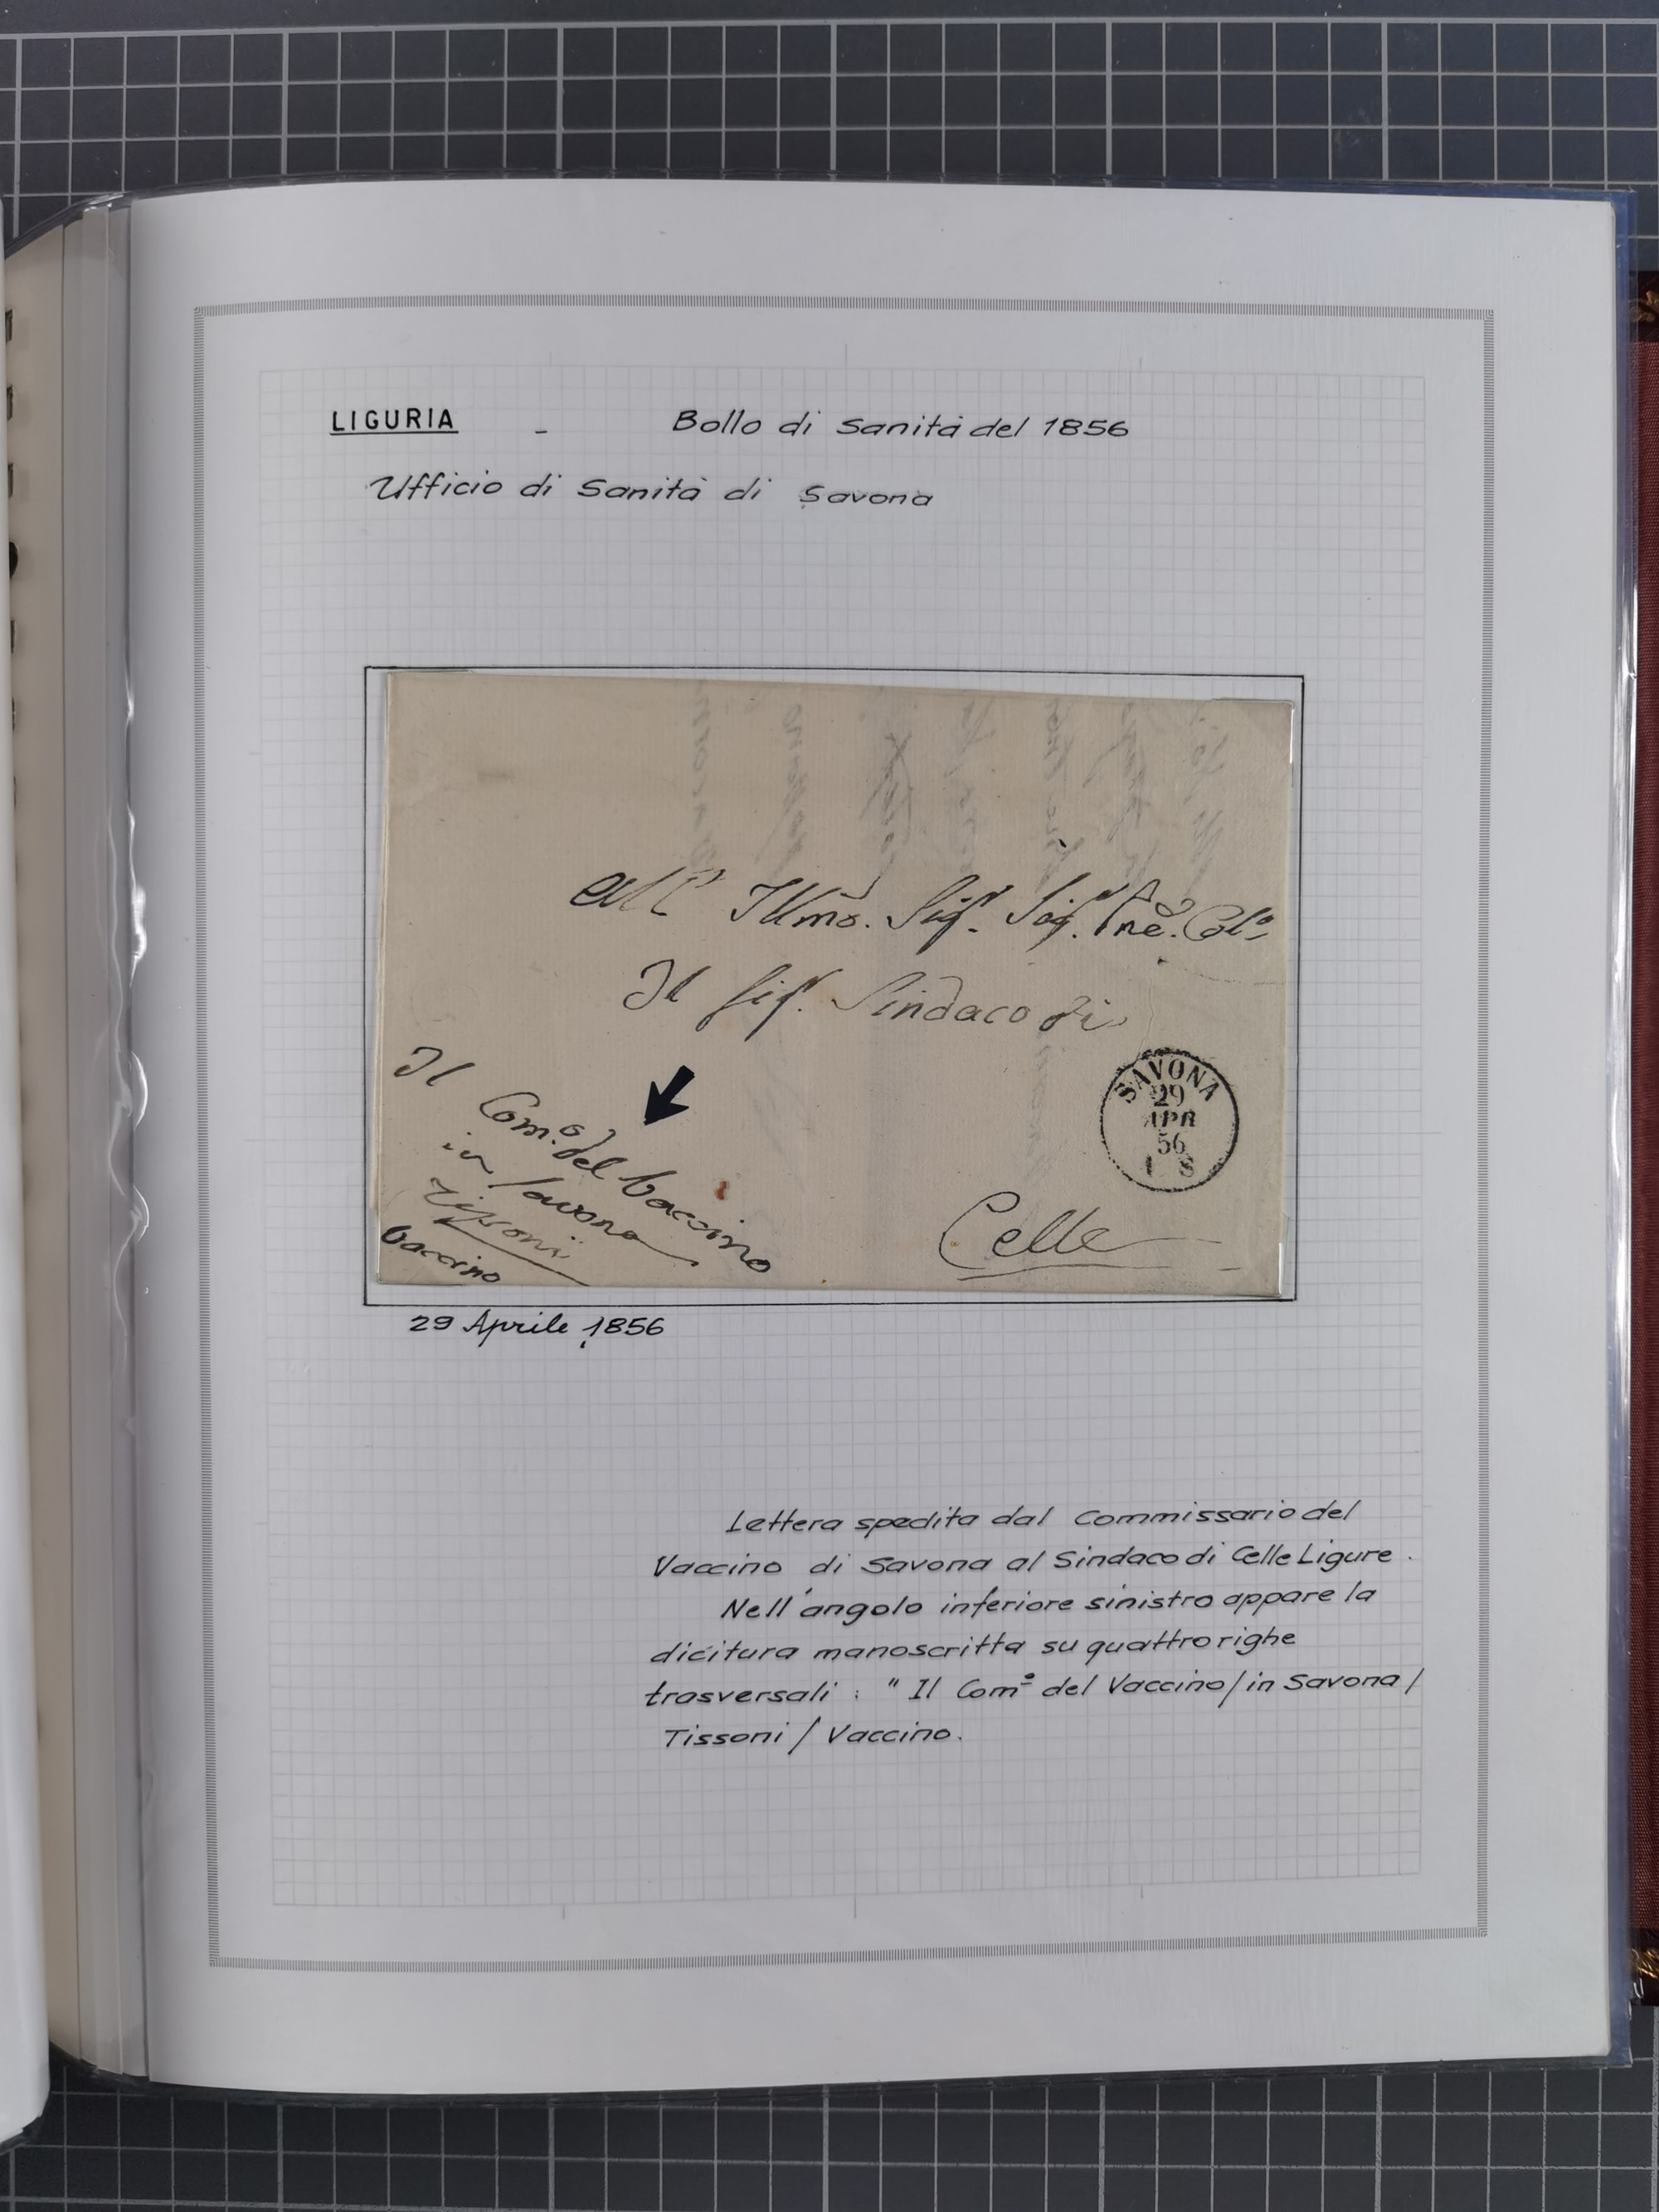 LIGURIA - Bollo di Sanità del 1856
Ufficio di Sanità di Savona
all' Illmo. Sigr. Sigr. Pne. Col.
Il Sigr. Sindaco di
Celle
SAVONA
29
APR
56
1 S
Il Com.o del Vaccino
in Savona
Tissoni
Vaccino
29 Aprile 1856
Lettera spedita dal Commissario del
Vaccino di Savona al Sindaco di Celle Ligure.
Nell'angolo inferiore sinistro appare la
dicitura manoscritta su quattro righe
trasversali: "Il Comº del Vaccino/in Savona/
Tissoni/Vaccino.